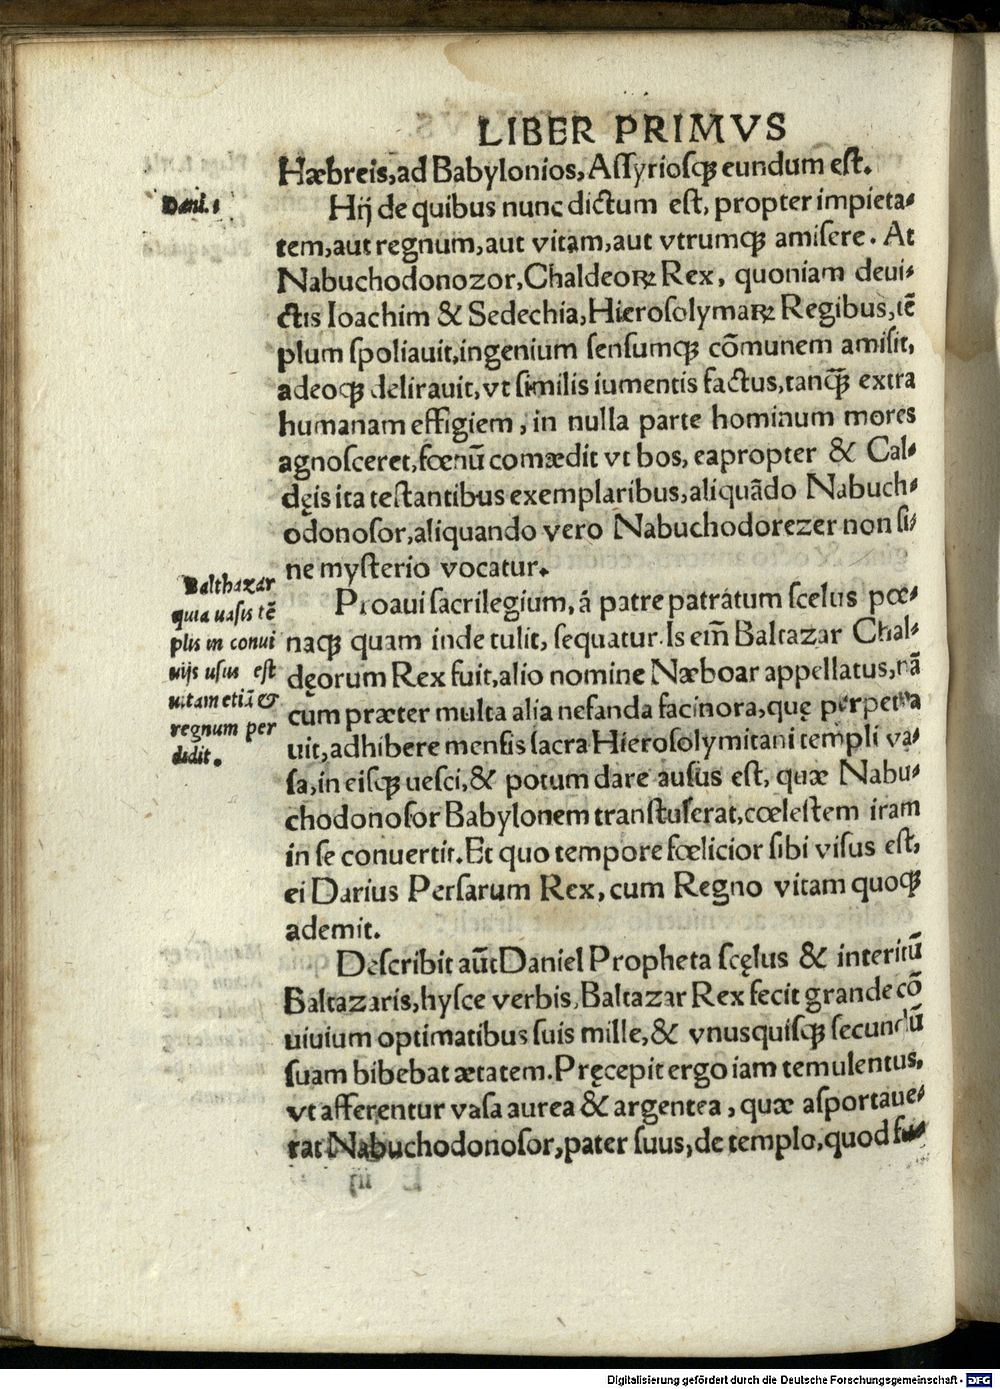 LIBER PRIMVS
Hæbreis, ad Babylonios, Aſſyrioſqꝫ eundum eſt.
Dani. 1
Hij de quibus nunc dictum eſt, propter impieta-
tem, aut regnum, aut vitam, aut vtrumqꝫ amiſere. At
Nabuchodonozor, Chaldeoꝝ Rex, quoniam deui-
ctis Ioachim & Sedechia, Hieroſolymaꝝ Regibus, tē
plum ſpoliauit, ingenium ſenſumqꝫ cōmunem amiſit,
adeoqꝫ delirauit, vt ſimilis iumentis factus, tanqꝫ̄ extra
humanam effigiem, in nulla parte hominum mores
agnoſceret, fœnū comædit vt bos, eapropter & Cal-
dęis ita teſtantibus exemplaribus, aliquãdo Nabuch-
odonoſor, aliquando vero Nabuchodorezer non ſi-
ne myſterio vocatur.
Balthazar
quia uaſis tē
plis in conui
uijs uſus eſt
uitam etiã &
regnum per
didit.
Proaui ſacrilegium, á patre patratum ſcelus pœ-
naqꝫ quam inde tulit, ſequatur. Is em̄ Baltazar Chal-
dęorum Rex fuit, alio nomine Næboar appellatus, nã
cum præter multa alia nefanda facinora, quę perpetra
uit, adhibere menſis ſacra Hieroſolymitani templi va-
ſa, in eiſqꝫ ueſci, & potum dare auſus eſt, quæ Nabu-
chodonoſor Babylonem tranſtulerat, cœleſtem iram
in ſe conuertit. Et quo tempore fœlicior ſibi viſus eſt,
ei Darius Perſarum Rex, cum Regno vitam quoqꝫ
ademit.
Deſcribit aūt Daniel Propheta ſcęlus & interitū
Baltazaris, hyſce verbis, Baltazar Rex fecit grande cō
uiuium optimatibus ſuis mille, & vnuſquiſqꝫ ſecundū
ſuam bibebat ætatem. Pręcepit ergo iam temulentus,
vt afferentur vaſa aurea & argentea, quæ aſportaue-
rat Nabuchodonoſor, pater ſuus, de templo, quod fu-
Digitalisierung gefördert durch die Deutsche Forschungsgemeinschaft - DFG